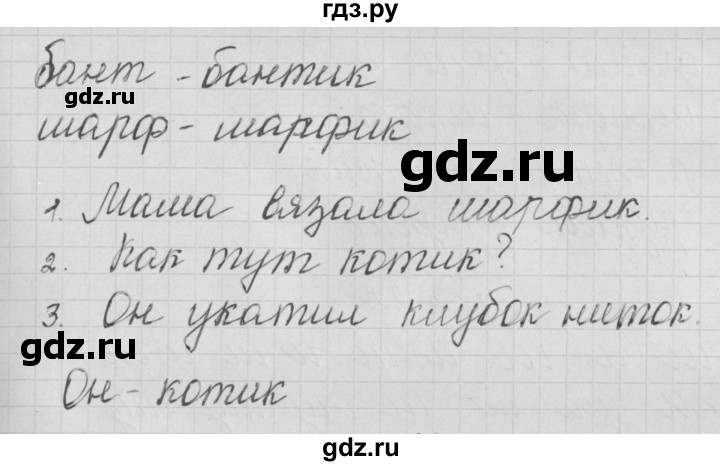 гдз.ру
бант - бантик
gdz.ru
шарф - шарфик
gdz.ru
1. Мама вязала шарфик.
2. Как тут котик?
3. Он укатил клубок ниток.
gdz.ru
Он - котик
gdz.ru
gdz.ru